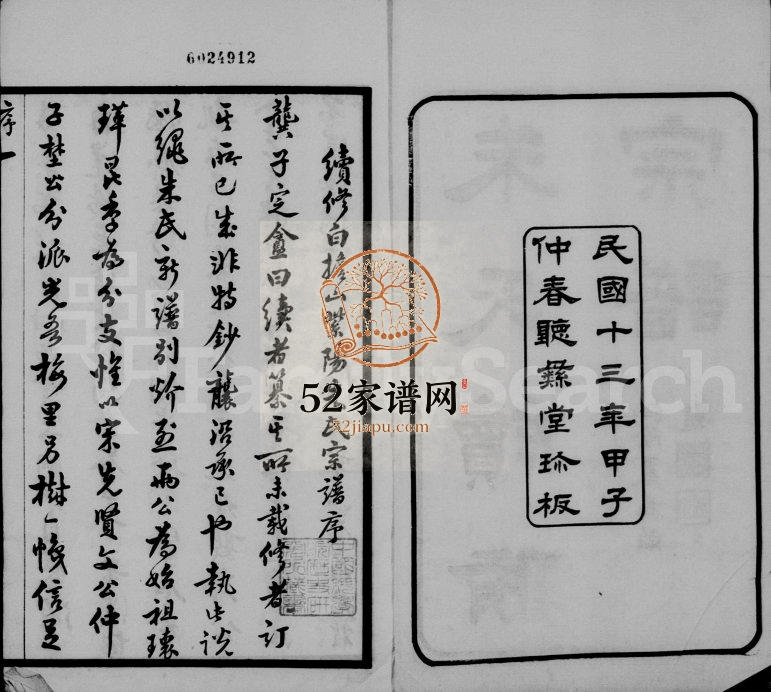 6024912
民國十三年甲子
仲春聽彝堂珍板
續修白 山 陽 氏宗譜序
龔子定盦曰續者纂其所未載修者訂
其所已載非特鈔襲沿承已也執此説
以繩朱氏新譜別 兩公為始祖瓌
瑋昆季為分支惟以宋先賢文公仲
子埜公分派 梅里另樹一幟信足
序一
52家谱网
52jiapu.com
FamilySearch